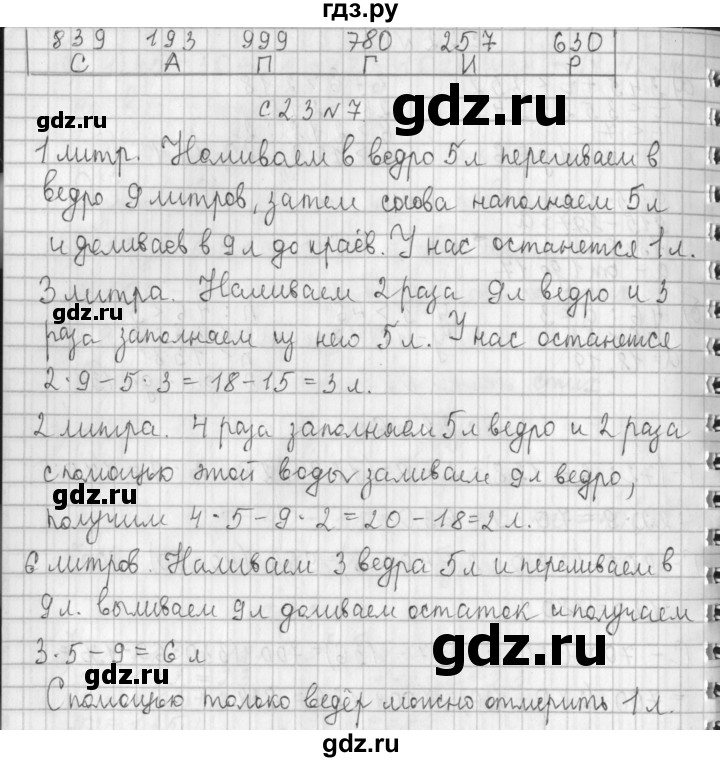 гдз.ру
839 193 999 780 257 630
С А П Г И Р
с 23 № 7
gdz.ru
gdz.ru
1 литр. Наливаем в ведро 5л переливаем в
ведро 9 литров, затем снова наполняем 5л
gdz.ru
и доливаев в 9л до краёв. У нас останется 1л.
3 литра. Наливаем 2 раза 9л ведро и 3
gdz.ru
gdz.ru
раза заполняем из него 5л. У нас останется
2·9-5·3=18-15=3л.
2 литра. 4 раза заполняем 5л ведро и 2 раза
с помощью этой воды заливаем 9л ведро,
gdz.ru
получим 4·5-9·2=20-18=2л.
6 литров. Наливаем 3 ведра 5л и переливаем в
gdz.ru
9л. выливаем 9л доливаем остаток и получаем
3·5-9=6л
gdz.ru
gdz.ru
С помощью только ведёр можно отмерить 1л.
gdz.ru